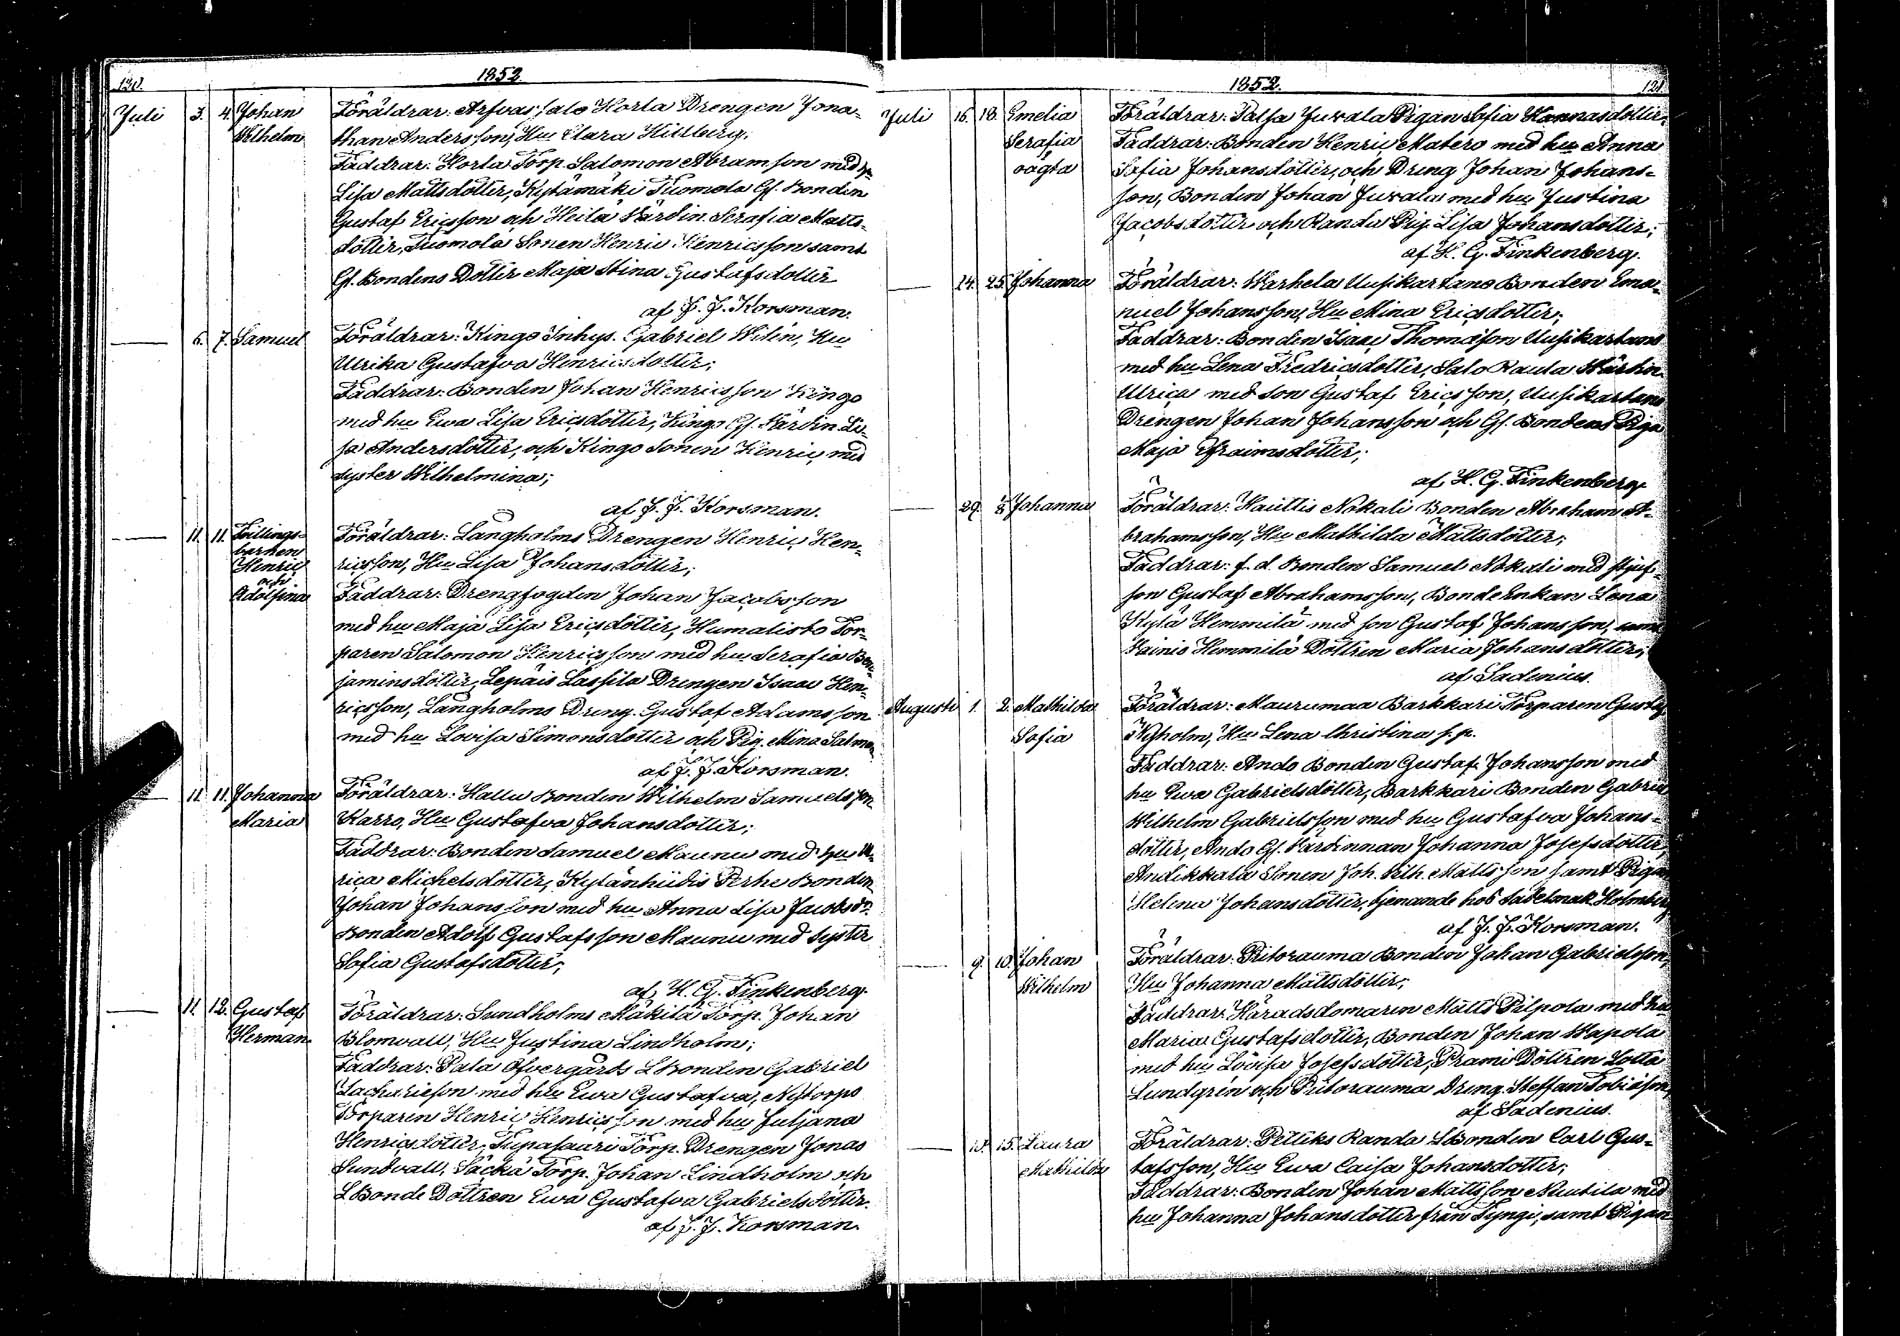 130.
1852
Juli 3. 4. Johan Wilhelm
Föräldrar: Arfvas; Salo Horla Drengen Jona-
than Andersson, Hu Clara Hillberg;
Faddrar: Horla Torp. Salomon Abramson med hu
Lisa Mattsdotter, Kylämäki Tuomola Gl. Bonden
Gustaf Ericsson och Heilä Värdin. Serafia Matts-
dotter, Tuomola Sonen Henric Henricsson samt
Gl. Bondens Dotter Maja Stina Gustafsdotter
af J. J. Korsman.
— 6. 7. Samuel
Föräldrar: Kingo Inhys. Gabriel Wilén, Hu
Ulrika Gustafva Henricsdotter;
Faddrar: Bonden Johan Henricsson Kingo
med hu Ewa Lisa Ericsdotter, Kingo Gl. Värdin Li-
sa Andersdotter, och Kingo Sonen Henric, med
syster Wilhelmina;
af J. J. Korsman.
— 11. 11. Tvillings-
barnen
Henric
och
Adolfina
Föräldrar: Långholms Drengen Henric Hen-
ricsson, Hu Lisa Johansdotter;
Faddrar: Drengfogden Johan Jacobsson
med hu Maja Lisa Ericsdotter, Humalisto Tor-
paren Salomon Henricsson med hu Serafia Ben-
jaminsdotter, Lepäis Lassila Drengen Isaac Hen-
ricsson, Långholms Dreng. Gustaf Adamsson
med hu Lovisa Simonsdotter och Pig. Mina Salmen
af J. J. Korsman.
— 11. 11. Johanna Maria
Föräldrar: Hallu Bonden Wilhelm Samuelsson
Karro, Hu Gustafva Johansdotter;
Faddrar: Bonden Samuel Maunu med hu Ul-
rica Michelsdotter, Kylänhiidis Perhe Bonden
Johan Johansson med hu Anna Lisa Jacobsdr.
Bonden Adolf Gustafsson Maunu med syster
Sofia Gustafsdotter;
af H. G. Finkenberg.
— 11. 12. Gustaf Herman.
Föräldrar: Sundholms Mäkilä Torp. Johan
Blomvall, Hu Justina Lindholm;
Faddrar: Pala Öfvergårds LBonden Gabriel
Zachariesson med hu Ewa Gustafva, Nytorps
Torparen Henric Henricsson med hu Juljana
Henricsdotter, Tupasaari Torp. Drengen Jonas
Sundvall, Säckä Torp. Johan Lindholm och
LBonde Dottren Ewa Gustafva Gabrielsdotter.
af J. J. Korsman.
1852.
131
Juli 16. 18. Emelia
Serafia
oägta
Föräldrar: Palsa Juvala Pigan Sofia Hannasdotter;
Faddrar: Bonden Henric Matero med hu Anna
Sofia Johansdotter, och Dreng Johan Johans-
son, Bonden Johan Juvala med hu Justina
Jacobsdotter och Randu Pig. Lisa Johansdotter;
af H. G. Finkenberg.
— 24. 25. Johanna
Föräldrar: Warhela Uusikartano Bonden Ema-
nuel Johansson, Hu Mina Ericsdotter;
Faddrar: Bonden Isaac Thomasson Uusikartano
med hu Lena Fredricsdotter, Salo Raula Värdin
Ulrica med son Gustaf Ericsson, Uusikartano
Drengen Johan Johansson och Gl. Bondens Piga
Maja Efraimsdotter;
af H. G. Finkenberg.
— 29. 1/8 Johanna
Föräldrar: Haiittis Nokali Bonden Abraham A-
brahamsson, Hu Mathilda Mattsdotter;
Faddrar: f. d. Bonden Samuel Nokali med styf-
son Gustaf Abrahamsson, BondeEnkan Lena
Kylä Hemmilä med son Gustaf Johansson, samt
Vainio Hemmilä Dottren Maria Johansdotter;
af Sadenius.
Augusti 1. 2. Mathilda
Sofia
Föräldrar: Maurumaa Barkkari Torparen Gustaf
Nyholm, Hu Lena Christina s. p.
Faddrar: Ando Bonden Gustaf Johansson med
hu Ewa Gabrielsdotter, Barkkari Bonden Gabriel
Wilhelm Gabrielsson med hu Gustafva Johans-
dotter, Ando Gl. Värdinnan Johanna Josefsdotter,
Andikkala Sonen Joh. Vilh. Mattsson samt Pigan
Helena Johansdotter, tjenande hos Sadelmak. Holmberg
af J. J. Korsman.
— 9. 10. Johan
Wilhelm
Föräldrar: Pitorauma Bonden Johan Gabrielsson,
Hu Johanna Mattsdotter;
Faddrar: Häradsdomaren Matts Pilpola med hu
Maria Gustafsdotter, Bonden Johan Wapola
med hu Lovisa Josefsdotter, Prami Dottren Lotta
Lundgrén och Pitorauma Dreng. Steffan Tobiasson,
af Sadenius.
— 10. 15. Laura
Mathilda
Föräldrar: Pettiks Randa LBonden Carl Gus-
tafsson, Hu Ewa Caisa Johansdotter;
Faddrar: Bonden Johan Mattsson Nuutila med
hu Johanna Johansdotter från Tyngi, samt Pigan